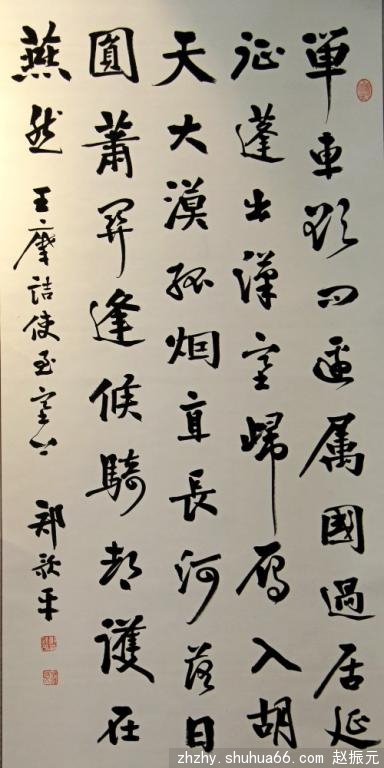 單車欲问邊属國過居延
征蓬出漢塞歸雁入胡
天大漠孤烟直長河落日
圓蕭関逢候騎都護在
燕然 王摩詰使至塞上 郑平
zhzhy.shuhua66.com 赵振元